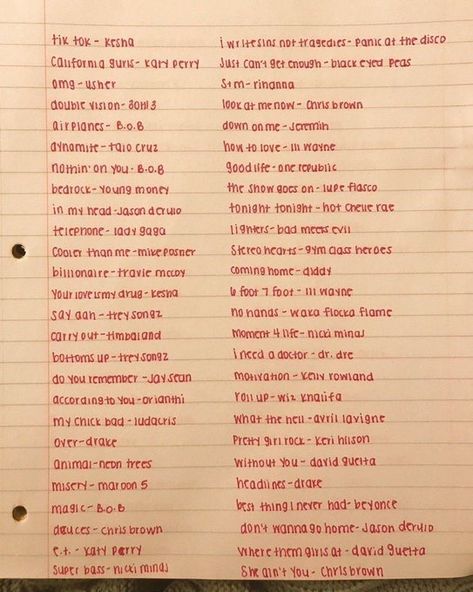 tik tok - kesha
california gurls - katy perry
omg - usher
double vision - 3OH!3
airplanes - B.O.B
dynamite - taio cruz
nothin' on you - B.O.B
bedrock - young money
in my head - Jason derulo
telephone - lady gaga
cooler than me - mike posner
billionaire - travie mccoy
your love is my drug - kesha
say aah - trey songz
carry out - timbaland
bottoms up - trey songz
do you remember - Jay sean
according to you - orianthi
my chick bad - ludacris
over - drake
animal - neon trees
misery - maroon 5
magic - B.O.B
deuces - chris brown
e.t. - katy perry
super bass - nicki minaj
i write sins not tragedies - panic at the disco
Just can't get enough - black eyed peas
S+m - rihanna
look at me now - chris brown
down on me - Jeremih
how to love - lil wayne
good life - one republic
the show goes on - lupe fiasco
tonight tonight - hot chelle rae
lighters - bad meets evil
stereo hearts - gym class heroes
coming home - diddy
6 foot 7 foot - lil wayne
no hands - waka flocka flame
moment 4 life - nicki minaj
i need a doctor - dr. dre
motivation - kelly rowland
roll up - wiz khalifa
what the hell - avril lavigne
Pretty girl rock - keri hilson
without you - david guetta
headlines - drake
best thing I never had - beyonce
don't wanna go home - Jason derulo
where them girls at - david guetta
She ain't you - chris brown